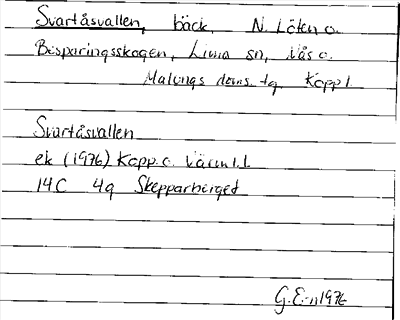 Svartåsvallen, bäck, N. Löten o.
Besparingsskogen, Lima sn, Nås o.
Malungs doms. tg Kopp l.
Svartåsvallen
ek (1976) Kopp. o. Värml. l.
14C 4g Skepparberget
G. E-n 1976